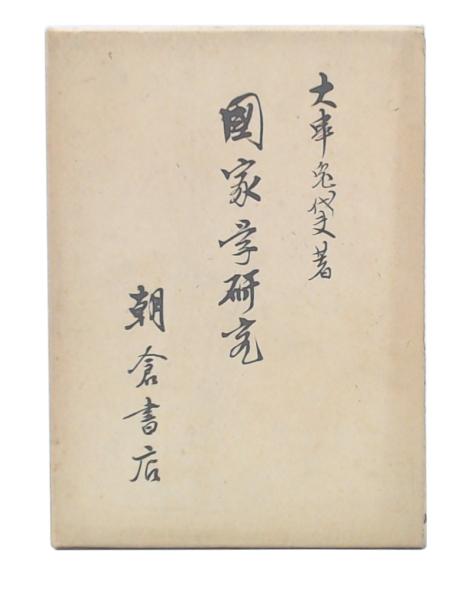 大串兎代夫著
國家学研究
朝倉書店